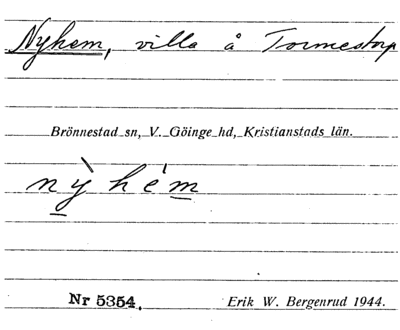 Nyhem, villa å Tormestorp
Brönnestad sn, V. Göinge hd, Kristianstads län.
nỳhém
Nr 5354. Erik W. Bergenrud 1944.